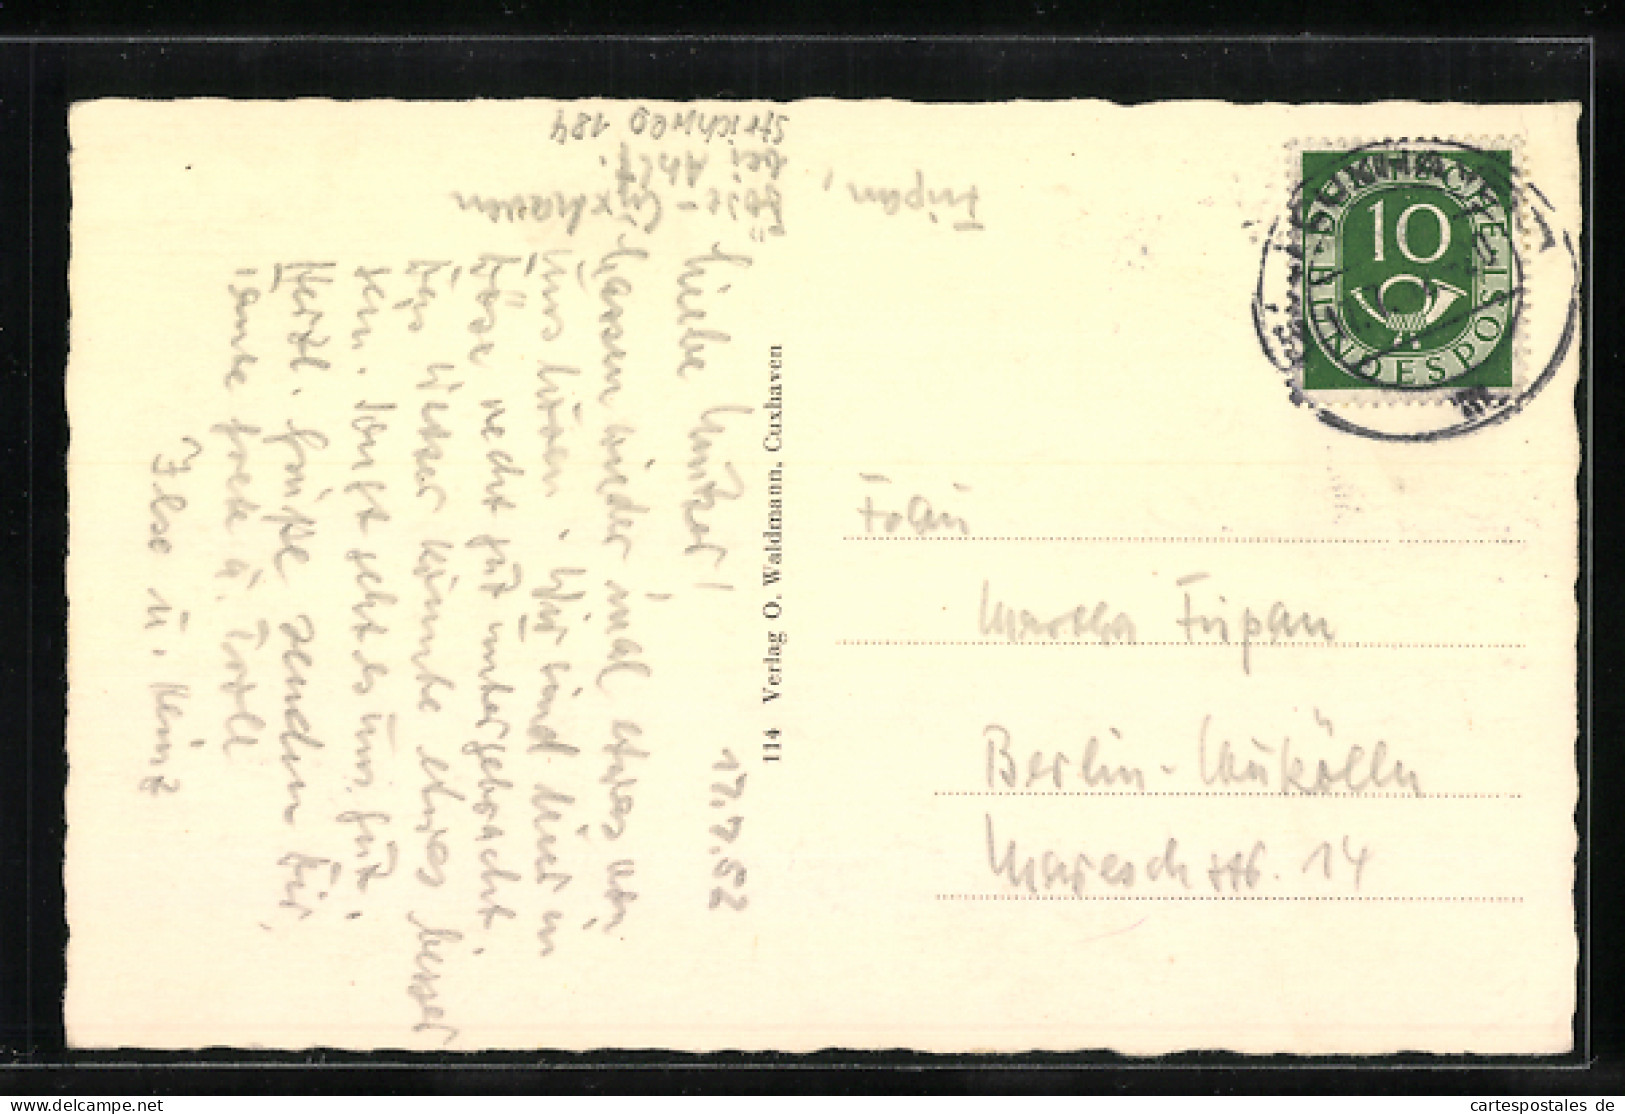 Döse-Cuxhaven
bei Ahlf.
Strichweg 184
17.7.52
Liebe
Lassen wieder mal etwas von
uns hören. Wir sind hier in
Döse recht gut untergebracht.
Das Wetter könnte etwas besser
sein. Sonst geht es uns gut.
Herzl. Grüße senden Dir,
Tante Frete u.
Ilse u. Heinz
114 Verlag O. Waldmann, Cuxhaven
DEUTSCHE BUNDESPOST
10
Frau
Martha Fripan
Berlin-Neukölln
Mareschstr. 14
Fripan,
cartespostales de